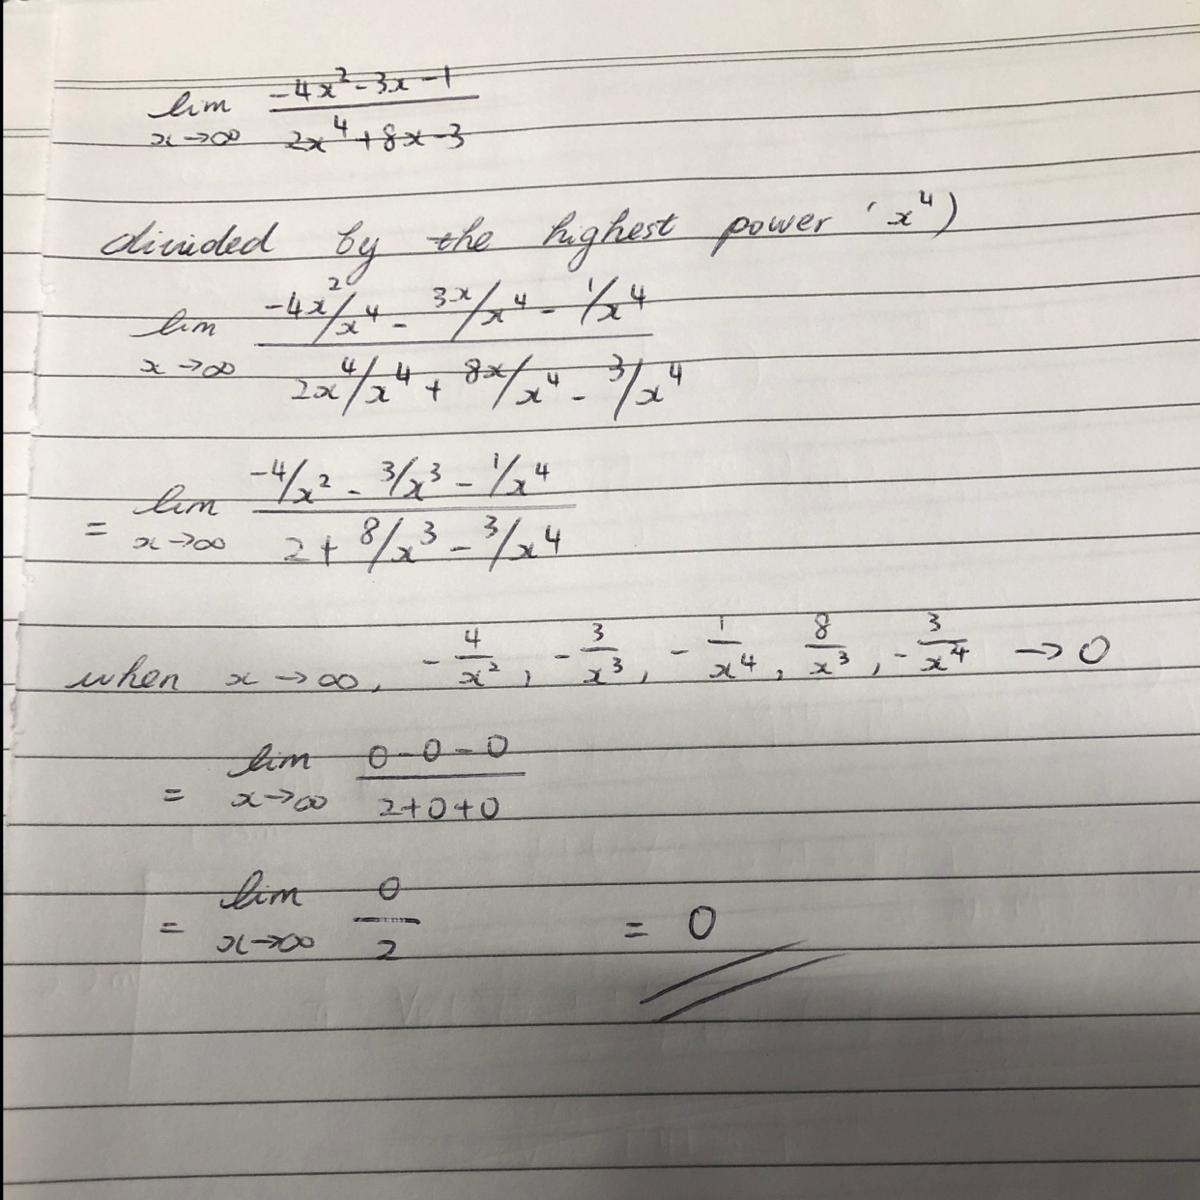 lim (-4x² - 3x - 1)/(2x⁴ + 8x - 3)
x→∞
divided by the highest power (x⁴)
lim (-4x²/x⁴ - 3x/x⁴ - 1/x⁴)/(2x⁴/x⁴ + 8x/x⁴ - 3/x⁴)
x→∞
= lim (-4/x² - 3/x³ - 1/x⁴)/(2 + 8/x³ - 3/x⁴)
x→∞
when x→∞, -4/x², -3/x³, -1/x⁴, 8/x³, -3/x⁴ → 0
= lim (0-0-0)/(2+0+0)
x→∞
= lim 0/2 = 0
x→∞